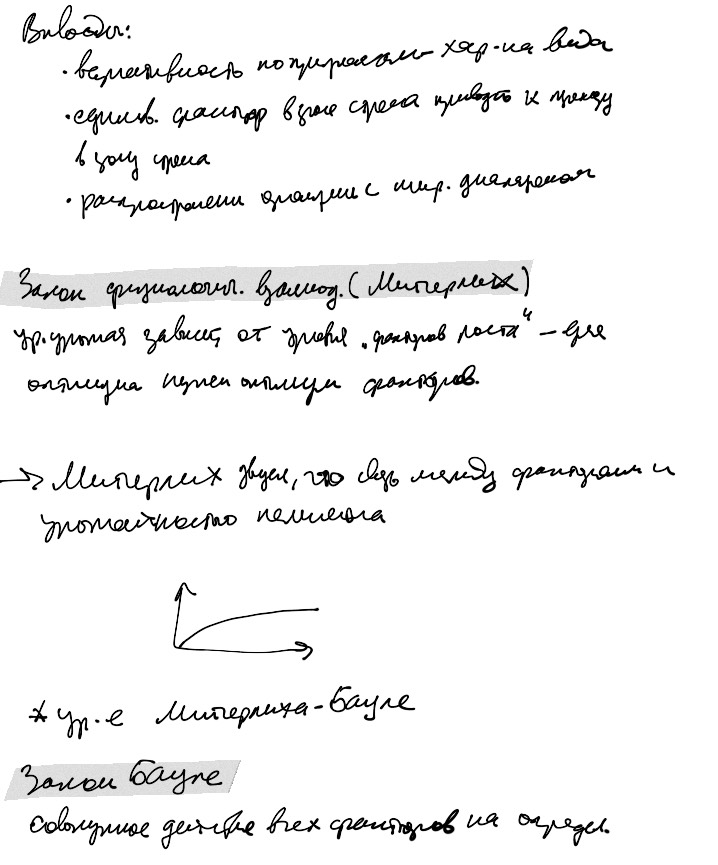 Выводы:
· вариативность по признакам хар-на вида
· единств. фактор в зоне стресса приводит к
в зону стресса
· распростанени с шир. диапазоном
Закон физиологич. взаимод. (Митчерлих)
ур. урожая зависит от уровня „факторов роста“ – для
оптимума нужен оптимум факторов.
→ Митчерлих что связь между факторами и
урожайностью нелинейна
* Ур-е Митчерлиха-Бауле
Закон Бауле
совокупное действие всех факторов на определ.